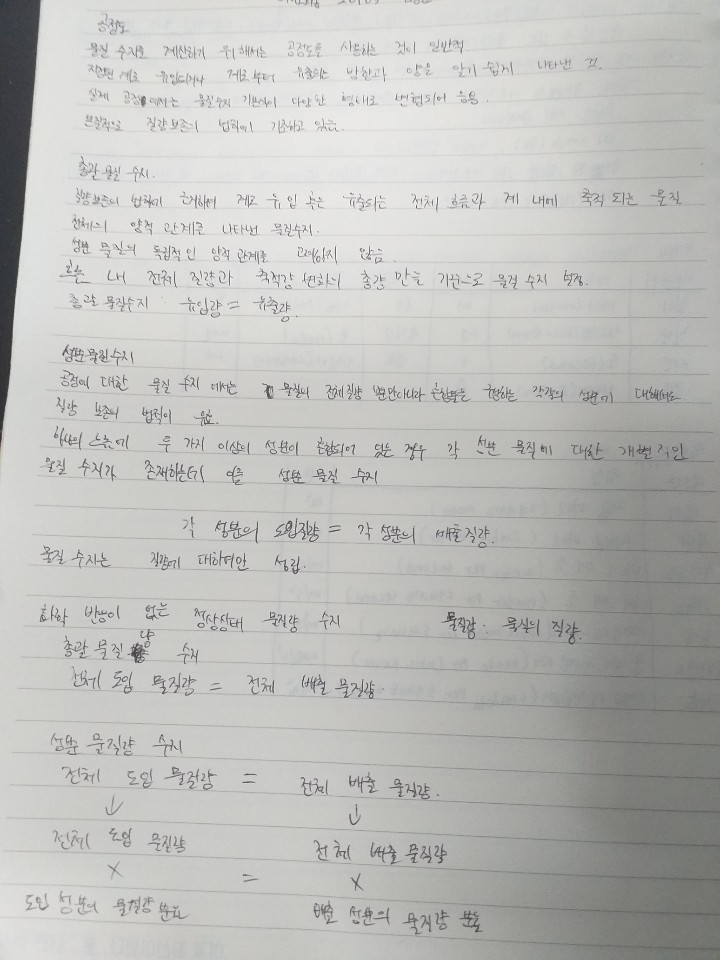 공정도
물질 수지를 계산하기 위해서는 공정도를 사용하는 것이 일반적
계로 유입되거나 계로부터 유출되는 방향과 양을 알기 쉽게 나타낸 것.
실제 공정에서는 물질수지 기본식이 다양한 형태로 변형되어 응용.
본질적으로 질량보존의 법칙에 기초하고 있음.
총괄 물질 수지.
질량보존의 법칙에 근거하여 계로 유입 혹은 유출되는 전체 흐름과 계 내에 축적되는 물질
전체의 양적 관계를 나타낸 물질수지.
성분 물질의 독립적인 양적 관계를 고려하지 않음.
흐름 내 전체 질량과 축적량 변화의 총량 만을 기준으로 물질 수지 설정.
총괄 물질수지 유입량 = 유출량.
성분물질수지
공정에 대한 물질 수지에서는 물질의 전체질량 뿐만아니라 혼합물을 구성하는 각각의 성분에 대해서도
질량 보존의 법칙이 유효.
하나의 흐름에 두 가지 이상의 성분이 혼합되어 있는 경우 각 성분 물질에 대한 개별적인
물질 수지가 존재하는데 이를 성분 물질 수지
각 성분의 도입질량 = 각 성분의 배출질량.
물질 수지는 질량에 대하여만 성립.
화학 반응이 없는 정상상태 물질량 수지 물질량: 물질의 질량.
총괄 물질량 수지
전체 도입 물질량 = 전체 배출 물질량.
성분 물질량 수지
전체 도입 물질량 = 전체 배출 물질량.
↓ ↓
전체 도입 물질량 전체 배출 물질량
× = ×
도입 성분의 물질량 분율 배출 성분의 물질량 분율